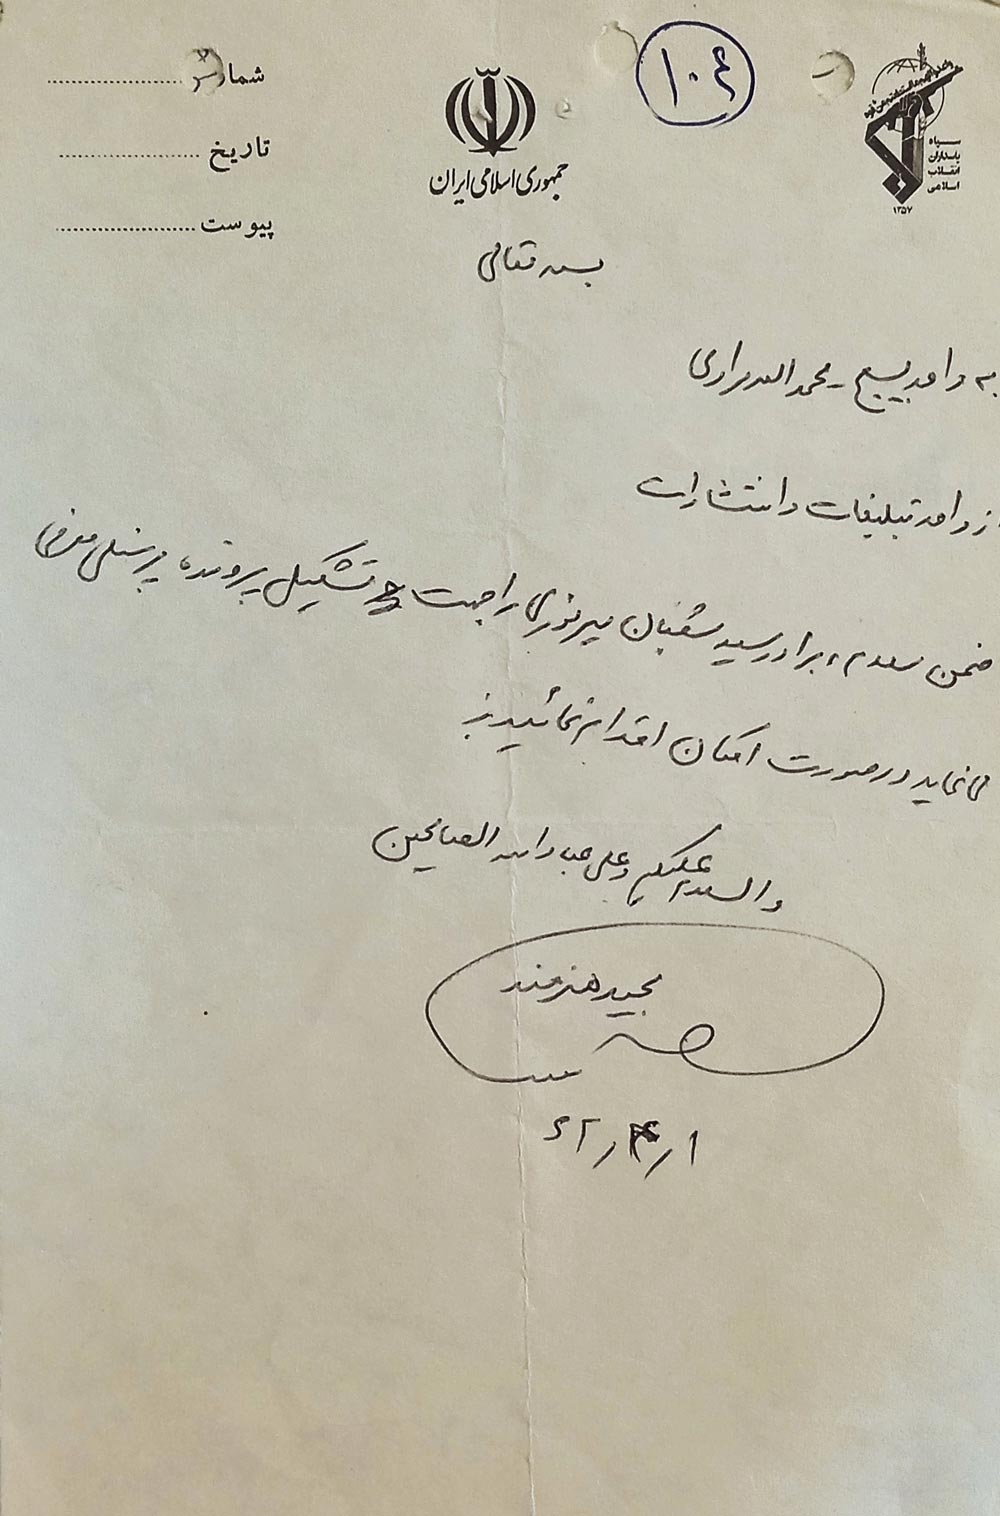 ۱۰۶
شماره
تاریخ
پیوست
جمهوری اسلامی ایران
سپاه
پاسداران
انقلاب
اسلامی
۱۳۵۷
بسمه تعالی
به واحد بسیج - محمد الله مرادی
از واحد تبلیغات و انتشارات
ضمن سلام، برادر سید شعبان میرنوری را جهت تشکیل پرونده پرسنلی معرفی
می نماید در صورت امکان اقدام نمائید
والسلام علیکم و علی عباد الله الصالحین
مجید هنرمند
۶۲/۴/۱